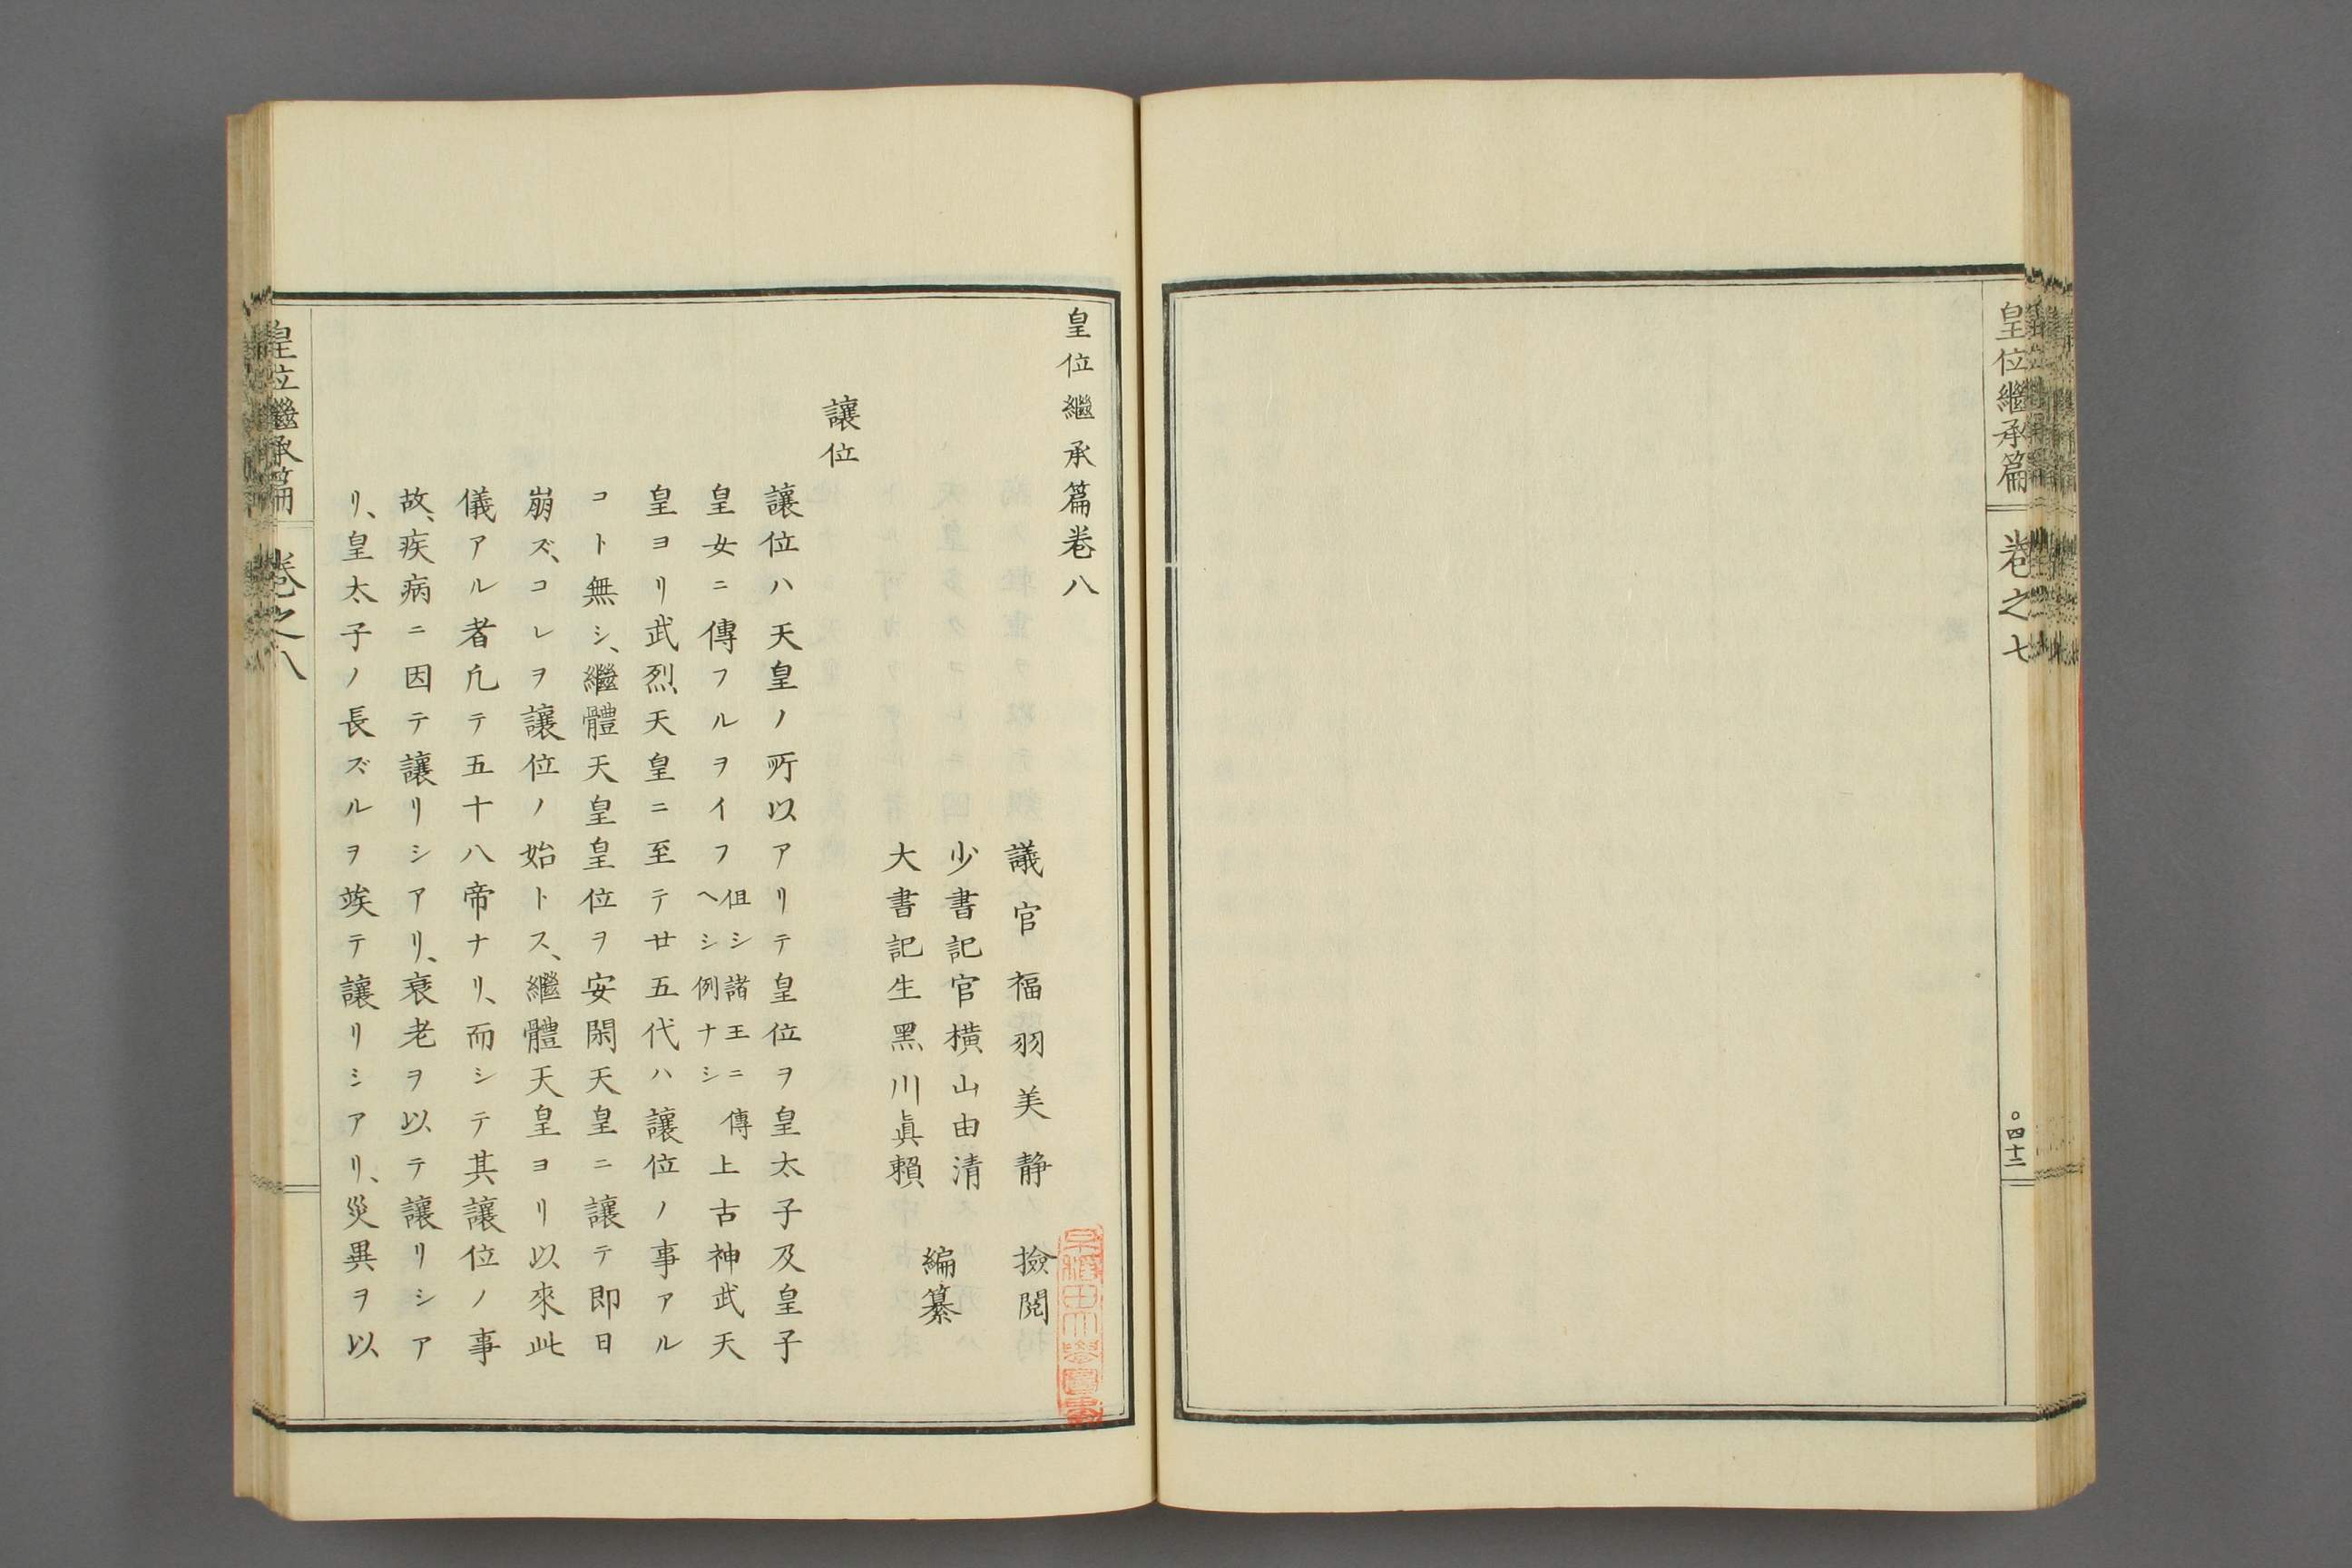 皇位繼承篇
卷之七
〇四十二
皇位繼承篇卷八
議官福羽美静 撿閲
少書記官横山由清
大書記生黑川眞賴
編纂
讓位
讓位ハ天皇ノ所以アリテ皇位ヲ皇太子及皇子
皇女ニ傳フルヲイフ伹シ諸王ニ傳ヘシ例ナシ上古神武天
皇ヨリ武烈天皇ニ至テ廿五代ハ讓位ノ事アル
コト無シ、繼體天皇皇位ヲ安閑天皇ニ讓テ即日
崩ズ、コレヲ讓位ノ始トス、繼體天皇ヨリ以來此
儀アル者凢テ五十八帝ナリ、而シテ其讓位ノ事
故、疾病ニ因テ讓リシアリ、衰老ヲ以テ讓リシア
リ、皇太子ノ長ズルヲ竢テ讓リシアリ、災異ヲ以
皇位繼承篇
卷之八
早稲田大學圖書